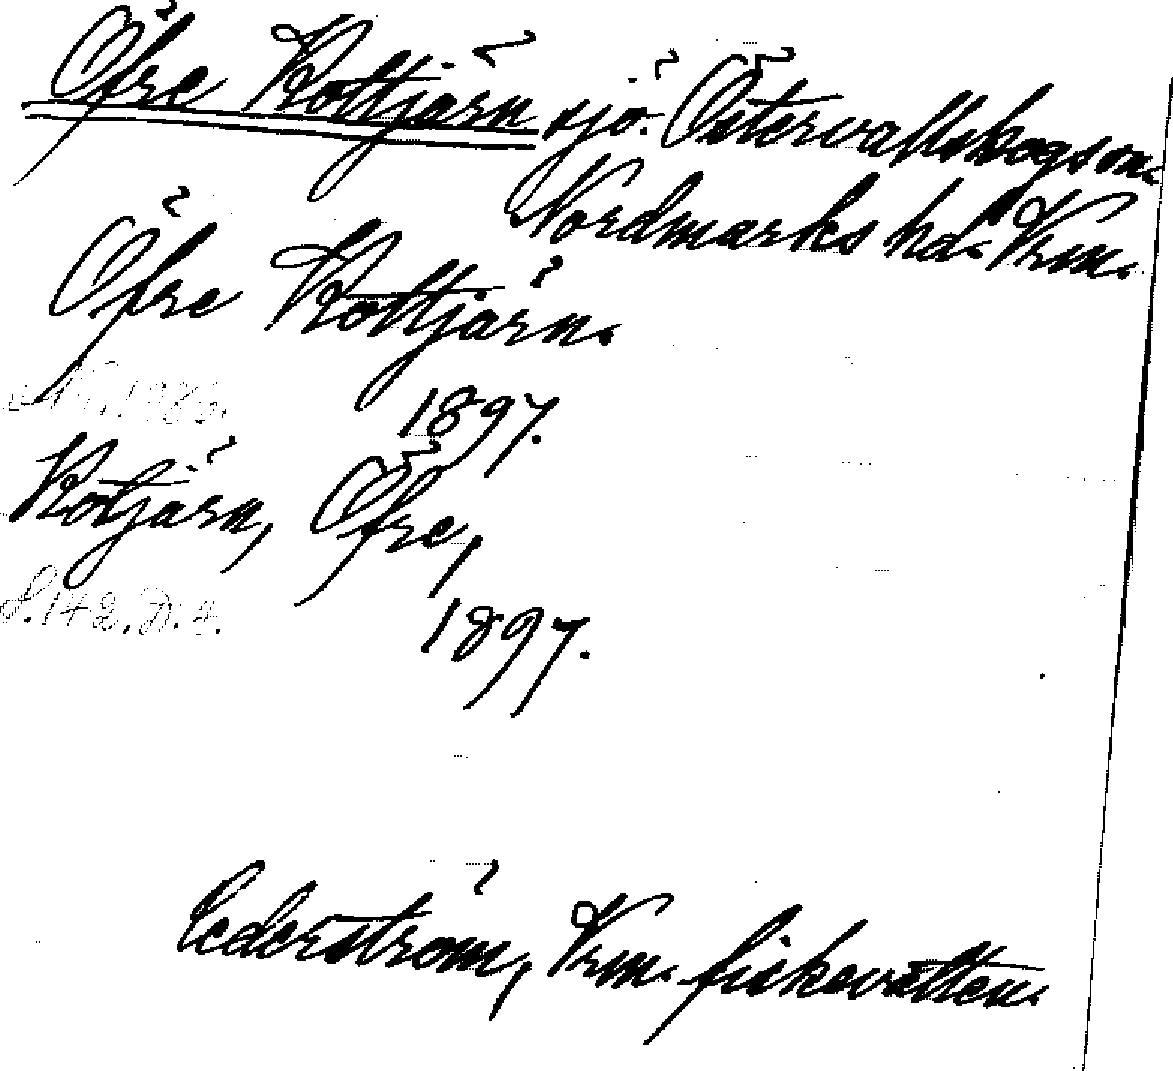 Öfre Kottjärn sjö. Östervallskogs sn.
Nordmarks hd. Vrm.
Öfre Kottjärn.
1897.
Kotjärn, Öfre,
S. 142. D. 4.
1897.
Cederström, Vrm. fiskevatten.